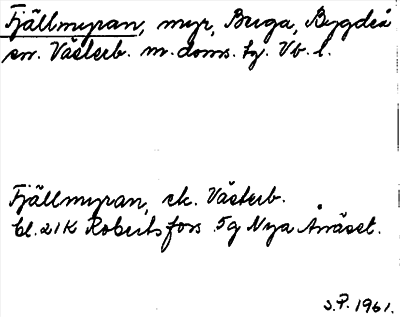 Fjällmyran, myr, Bruga, Bygdeå
sn. Västerb. m. doms. tg. Vb. l.
Fjällmyran, ek. Västerb.
bl. 21K Robertsfors 5g Nya Ånäset.
S.P. 1961.